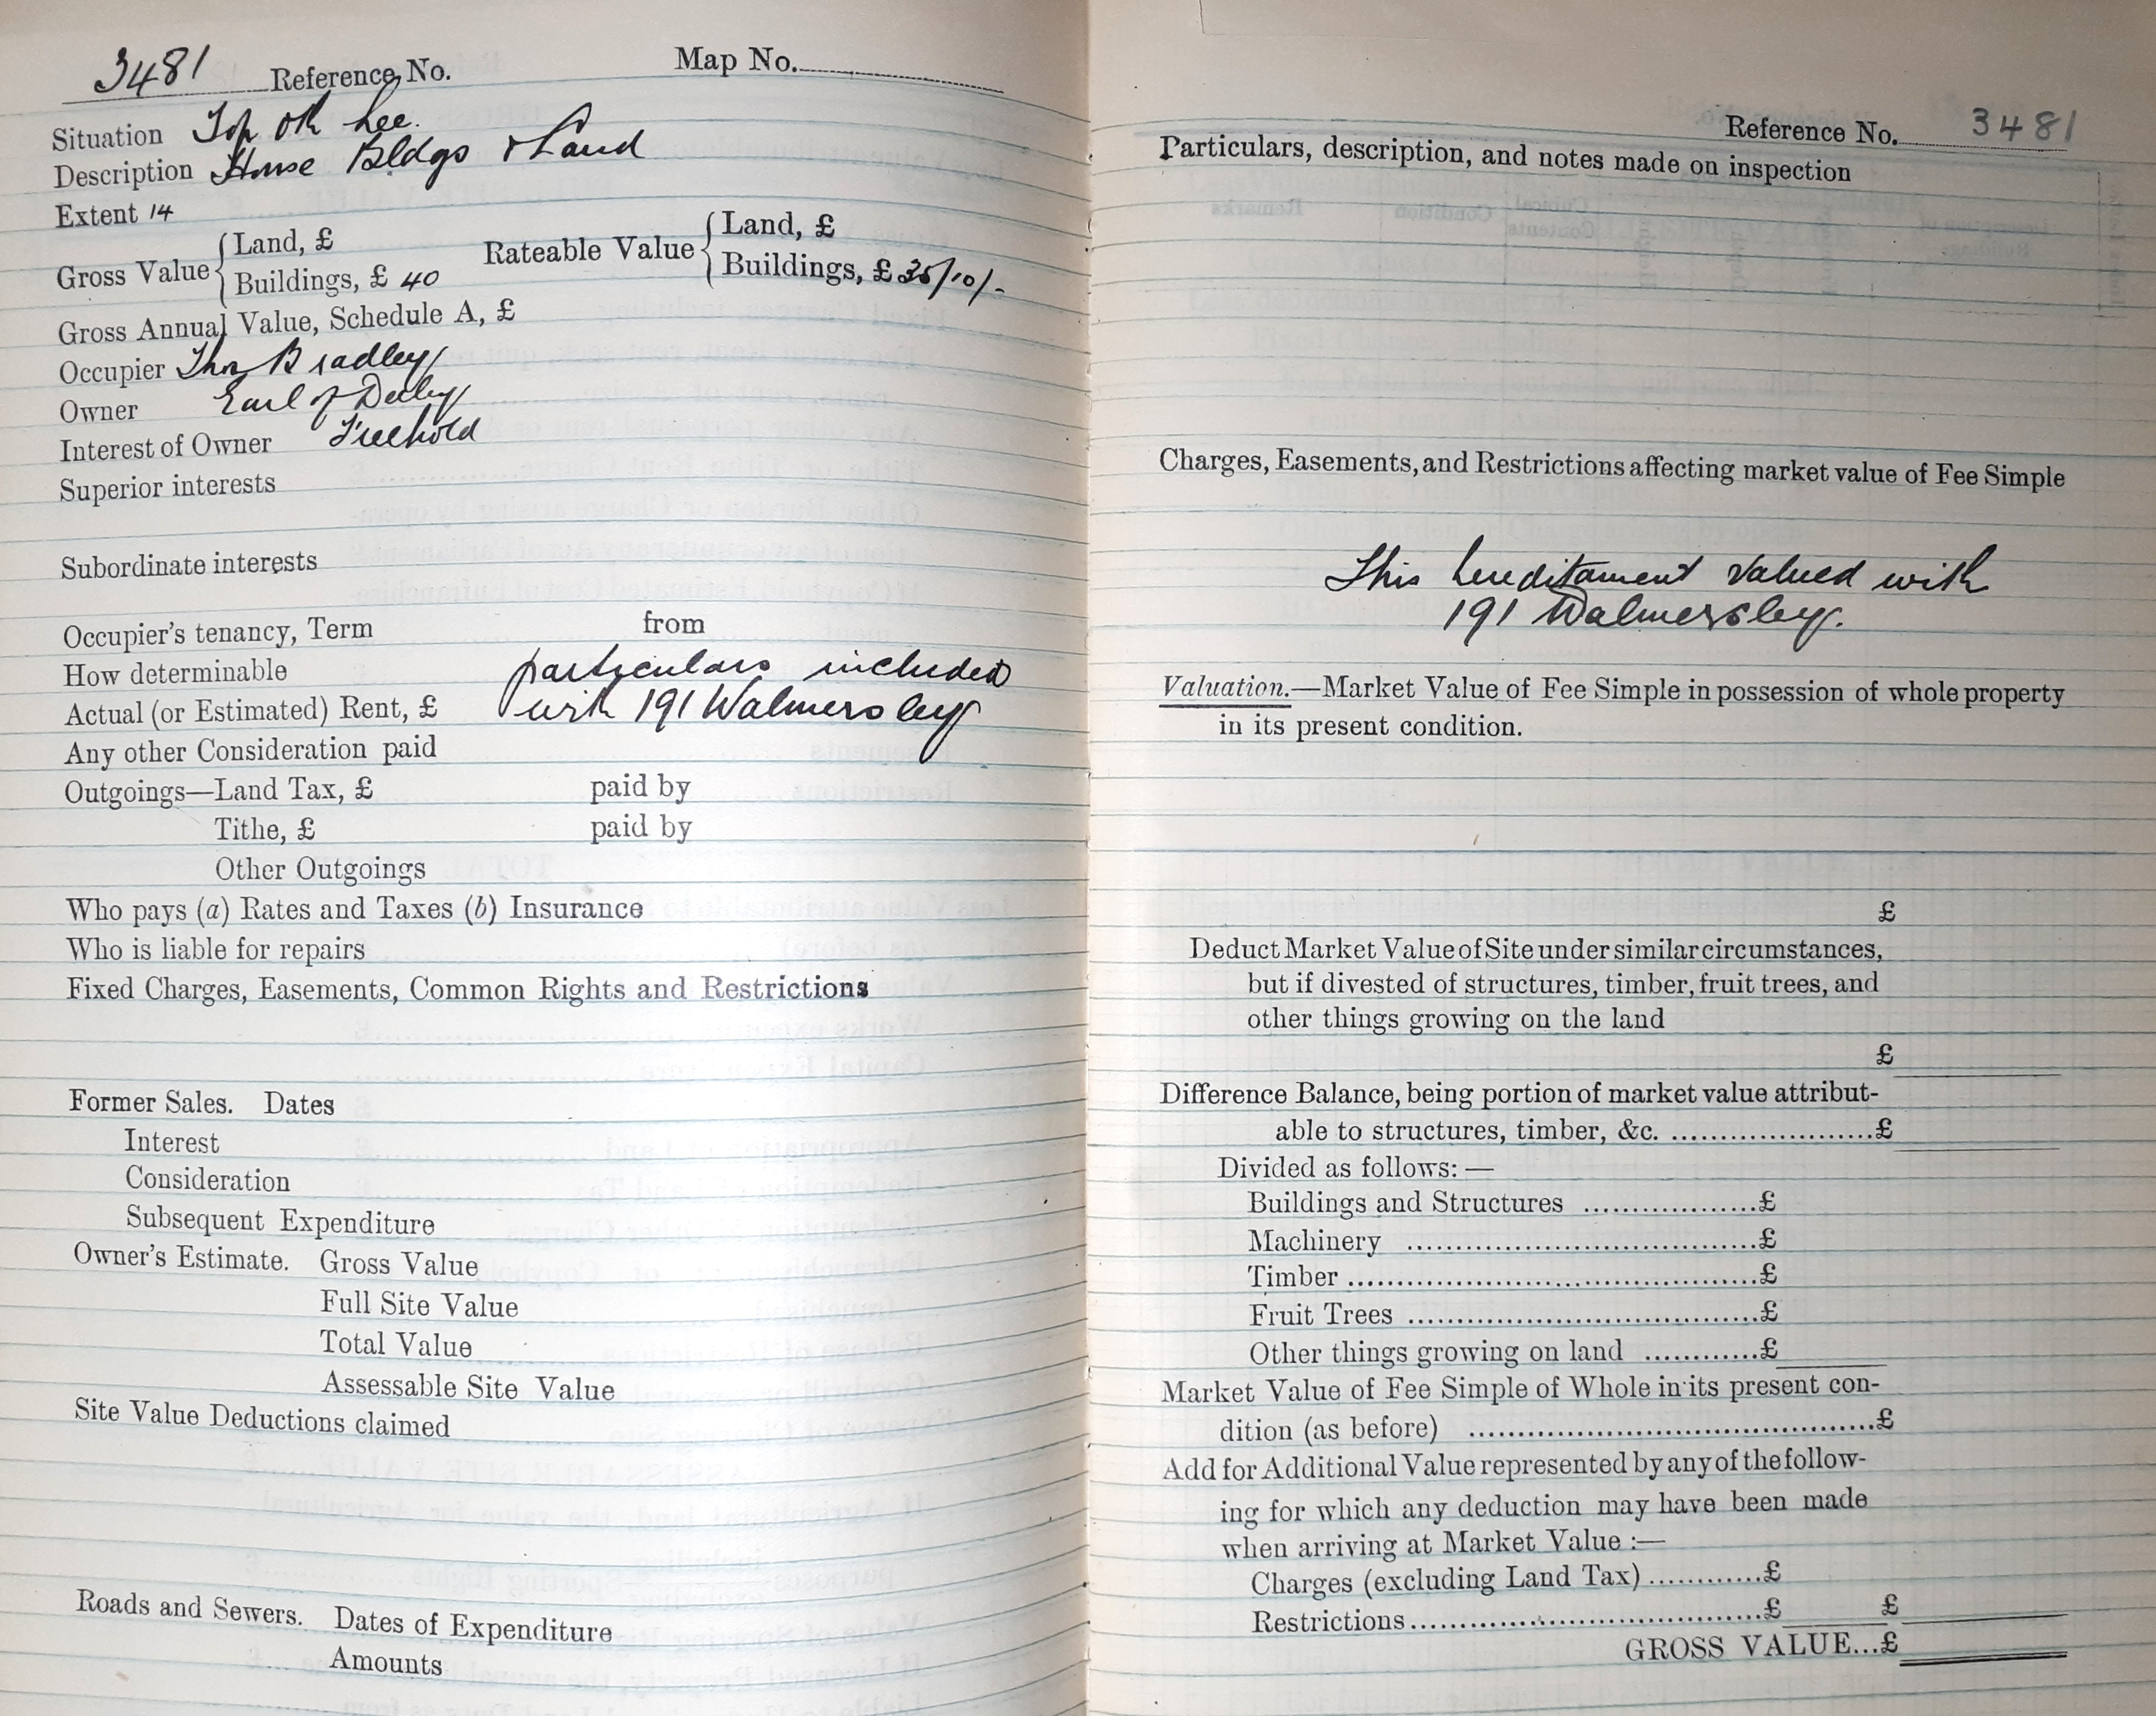 3481 Reference No. Map No.
Situation Top oth Lee.
Description House Bldgs & Land
Extent 14
Gross Value { Land, £
Buildings, £ 40
Rateable Value { Land, £
Buildings, £ 35/10/-
Gross Annual Value, Schedule A, £
Occupier Thos Bradley
Owner Earl of Derby
Interest of Owner Freehold
Superior interests
Subordinate interests
Occupier's tenancy, Term from
How determinable particulars included
Actual (or Estimated) Rent, £ with 191 Walmersley
Any other Consideration paid
Outgoings—Land Tax, £ paid by
Tithe, £ paid by
Other Outgoings
Who pays (a) Rates and Taxes (b) Insurance
Who is liable for repairs
Fixed Charges, Easements, Common Rights and Restrictions
Former Sales. Dates
Interest
Consideration
Subsequent Expenditure
Owner's Estimate. Gross Value
Full Site Value
Total Value
Assessable Site Value
Site Value Deductions claimed
Roads and Sewers. Dates of Expenditure
Amounts
Reference No. 3481
Particulars, description, and notes made on inspection
Charges, Easements, and Restrictions affecting market value of Fee Simple
This hereditament valued with
191 Walmersley.
Valuation.—Market Value of Fee Simple in possession of whole property
in its present condition.
£
Deduct Market Value of Site under similar circumstances,
but if divested of structures, timber, fruit trees, and
other things growing on the land
£
Difference Balance, being portion of market value attribut-
able to structures, timber, &c. ......................£
Divided as follows:—
Buildings and Structures ...................£
Machinery ......................................£
Timber .............................................£
Fruit Trees ......................................£
Other things growing on land ............£
Market Value of Fee Simple of Whole in its present con-
dition (as before) ............................................£
Add for Additional Value represented by any of the follow-
ing for which any deduction may have been made
when arriving at Market Value :—
Charges (excluding Land Tax) ............£
Restrictions ......................................£ £
GROSS VALUE...£